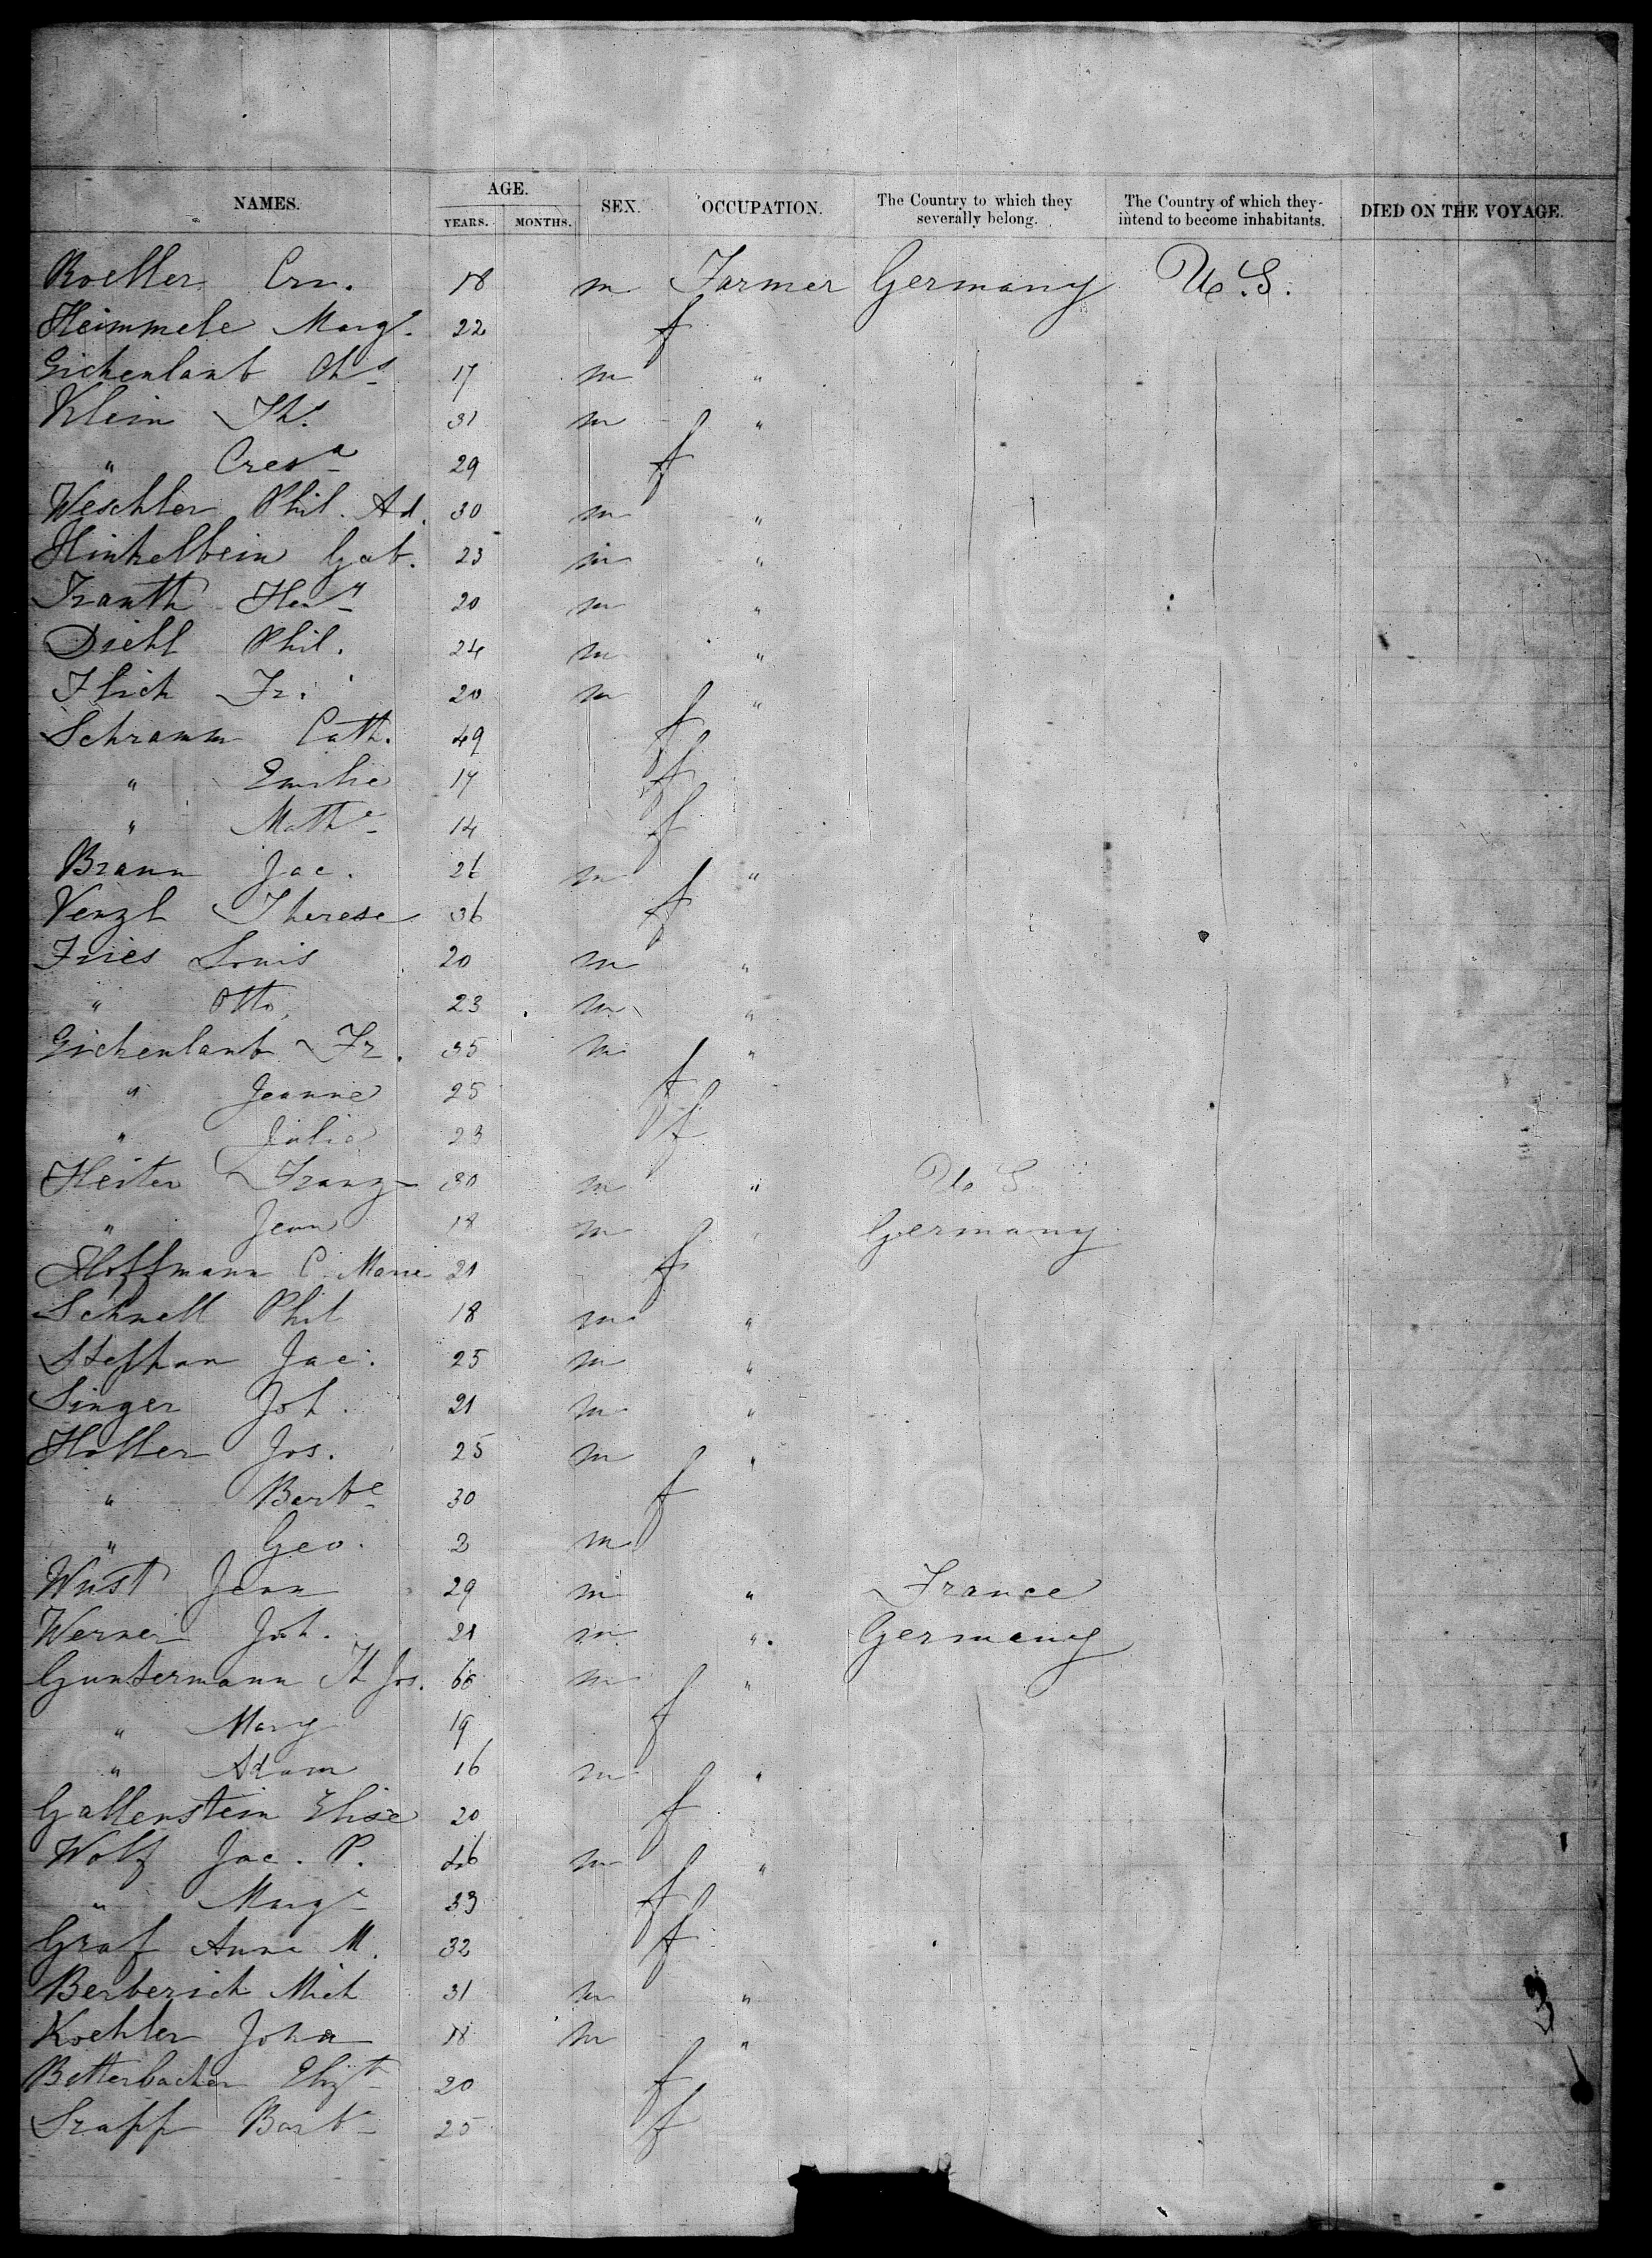 NAMES. AGE. SEX. OCCUPATION. The Country to which they severally belong. The Country of which they intend to become inhabitants. DIED ON THE VOYAGE.
YEARS. MONTHS.
Roeller Ern. 18 m Farmer Germany U.S.
Heimmele Marg. 22 f
Gickenlaub Chs 17 m "
Klein Th. 31 m "
" Cresa 29 f
Weschler Phil. Ad. 30 m "
Hinkelbein Gab. 23 m "
Franth Heny 20 m "
Diehl Phil. 24 m "
Flick Fr. 20 m "
Schramm Cath. 49 f
" Emilie 17 f
" Mathe 14 f
Brann Jac. 26 m "
Venzl Therese 36 f
Fries Louis 20 m "
" Otto 23 m "
Gickenlaub Fr. 35 m "
" Jeanne 25 f
" Julia 23 f
Heiter Franz 30 m " U.S.
" Jean 18 m " Germany
Hoffmann C. Marie 21 f
Schnell Phil 18 m "
Stephan Jac. 25 m "
Singer Joh. 21 m "
Holler Jos. 25 m "
" Barbe 30 f
" Geo. 2 m
Wüst Jean 29 m " France
Werner Joh. 21 m " Germany
Guntermann Th Jos. 66 m "
" Mary 19 f
" Adam 16 m "
Gallenstein Elise 20 f
Wolf Jac. P. 46 m "
" Marge 33 f
Graf Anna M. 32 f
Berberich Mich 31 m "
Koehler John 18 m "
Betterbacher Elizth 20 f
Srapp Barb 25 f
3